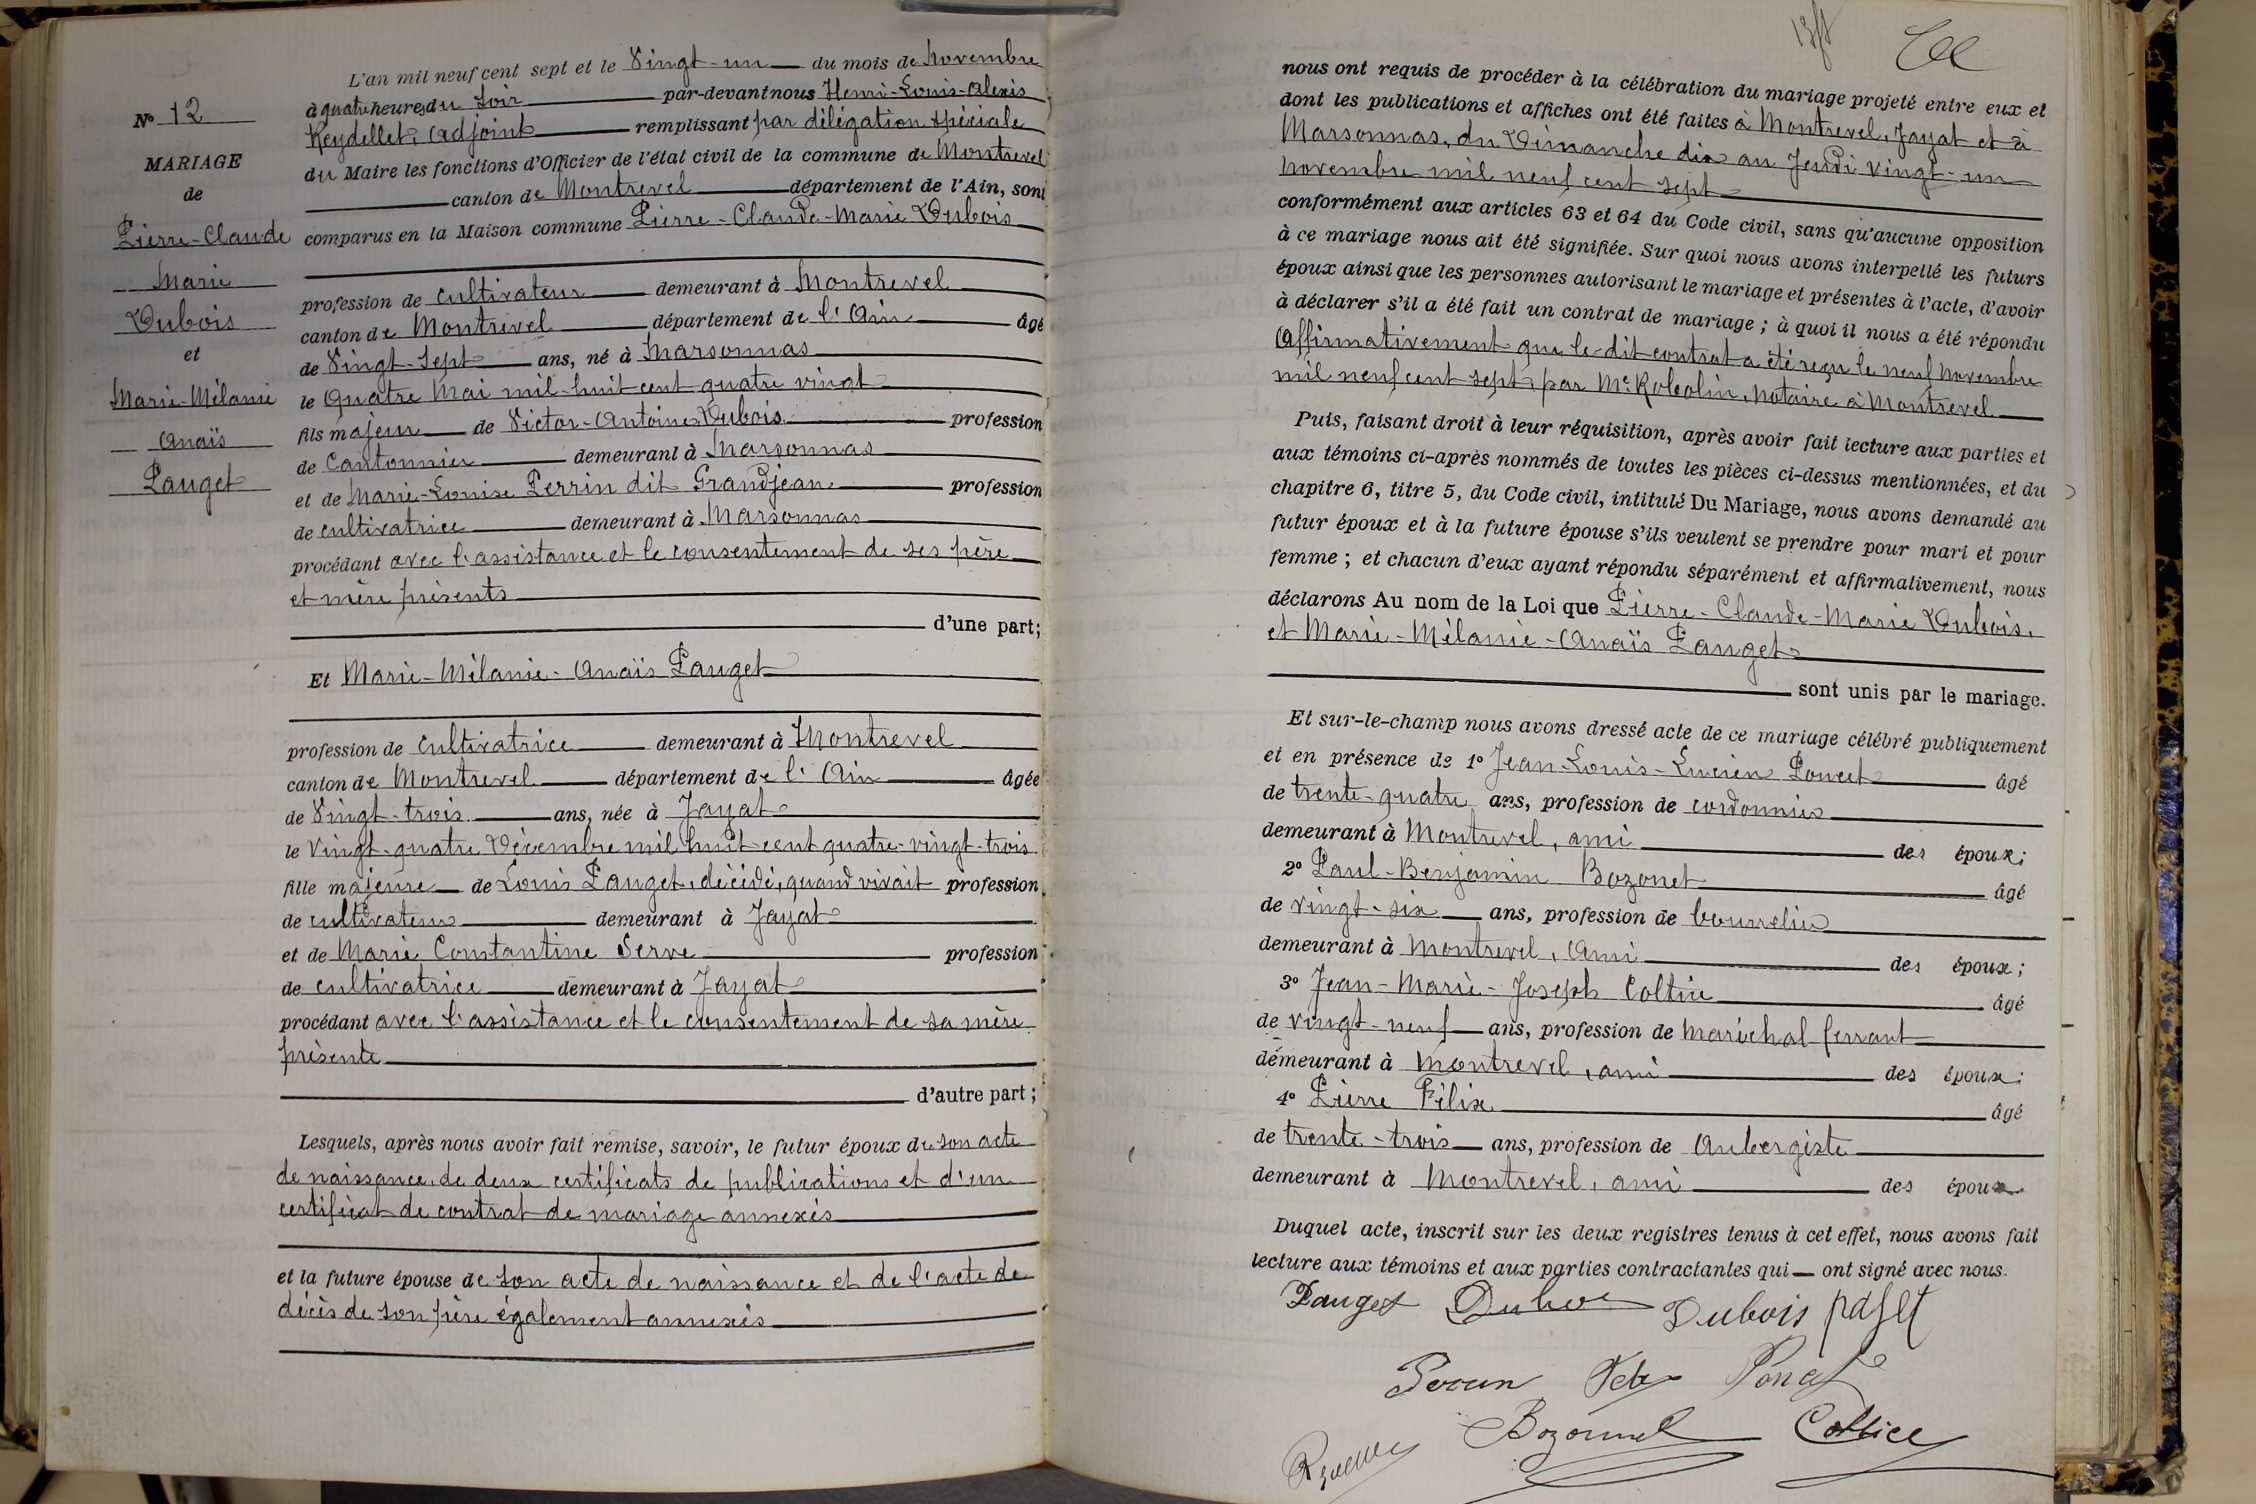 N° 12
MARIAGE
de
Pierre-Claude
Marie
Dubois
et
Marie-Mélanie
Anaïs
Pauget
L'an mil neuf cent sept et le Vingt-un du mois de Novembre
à quatre heures du soir par-devant nous Henri-Louis-Alexis
Reydellet, Adjoint remplissant par délégation spéciale
du Maire les fonctions d'Officier de l'état civil de la commune de Montrevel
canton de Montrevel département de l'Ain, sont
comparus en la Maison commune Pierre-Claude-Marie Dubois
profession de cultivateur demeurant à Montrevel
canton de Montrevel département de l'Ain âgé
de Vingt-sept ans, né à Marsonnas
le Quatre Mai mil-huit cent quatre vingt
fils majeur de Victor-Antoine Dubois profession
de Cantonnier demeurant à Marsonnas
et de Marie-Louise Perrin dit Grandjean profession
de cultivatrice demeurant à Marsonnas
procédant avec l'assistance et le consentement de ses père
et mère présents
d'une part;
Et Marie-Mélanie-Anaïs Pauget
profession de cultivatrice demeurant à Montrevel
canton de Montrevel département de l'Ain âgée
de Vingt-trois ans, née à Jayat
le Vingt-quatre Décembre mil huit cent quatre-vingt-trois
fille majeure de Louis Pauget, décédé, quand vivait profession
de cultivateur demeurant à Jayat
et de Marie Constantine Serve profession
de cultivatrice demeurant à Jayat
procédant avec l'assistance et le consentement de sa mère
présente
d'autre part;
Lesquels, après nous avoir fait remise, savoir, le futur époux de son acte
de naissance, de deux certificats de publications et d'un
certificat de contrat de mariage annexés
et la future épouse de son acte de naissance et de l'acte de
décès de son père également annexés
nous ont requis de procéder à la célébration du mariage projeté entre eux et
dont les publications et affiches ont été faites à Montrevel, Jayat et à
Marsonnas, du Dimanche dix au Jeudi vingt-un
novembre mil neuf cent sept
conformément aux articles 63 et 64 du Code civil, sans qu'aucune opposition
à ce mariage nous ait été signifiée. Sur quoi nous avons interpellé les futurs
époux ainsi que les personnes autorisant le mariage et présentes à l'acte, d'avoir
à déclarer s'il a été fait un contrat de mariage; à quoi il nous a été répondu
Affirmativement que le-dit contrat a été reçu le neuf Novembre
mil neuf cent sept, par Me Robolin, Notaire à Montrevel
Puis, faisant droit à leur réquisition, après avoir fait lecture aux parties et
aux témoins ci-après nommés de toutes les pièces ci-dessus mentionnées, et du
chapitre 6, titre 5, du Code civil, intitulé Du Mariage, nous avons demandé au
futur époux et à la future épouse s'ils veulent se prendre pour mari et pour
femme; et chacun d'eux ayant répondu séparément et affirmativement, nous
déclarons Au nom de la Loi que Pierre-Claude-Marie Dubois,
et Marie-Mélanie-Anaïs Pauget
sont unis par le mariage.
Et sur-le-champ nous avons dressé acte de ce mariage célébré publiquement
et en présence de 1° Jean-Louis-Lucien Poncet âgé
de trente-quatre ans, profession de cordonnier
demeurant à Montrevel, ami des époux;
2° Paul-Benjamin Bozonet âgé
de vingt-six ans, profession de bourrelier
demeurant à Montrevel, Ami des époux;
3° Jean-Marie-Joseph Coltice âgé
de vingt-neuf ans, profession de maréchal ferrant
demeurant à Montrevel, ami des époux;
4° Pierre Félix âgé
de trente-trois ans, profession de Aubergiste
demeurant à Montrevel, ami des époux
Duquel acte, inscrit sur les deux registres tenus à cet effet, nous avons fait
lecture aux témoins et aux parties contractantes qui ont signé avec nous.
Pauget Dubois Dubois
Perrin Poncet
Bozonnet Coltice